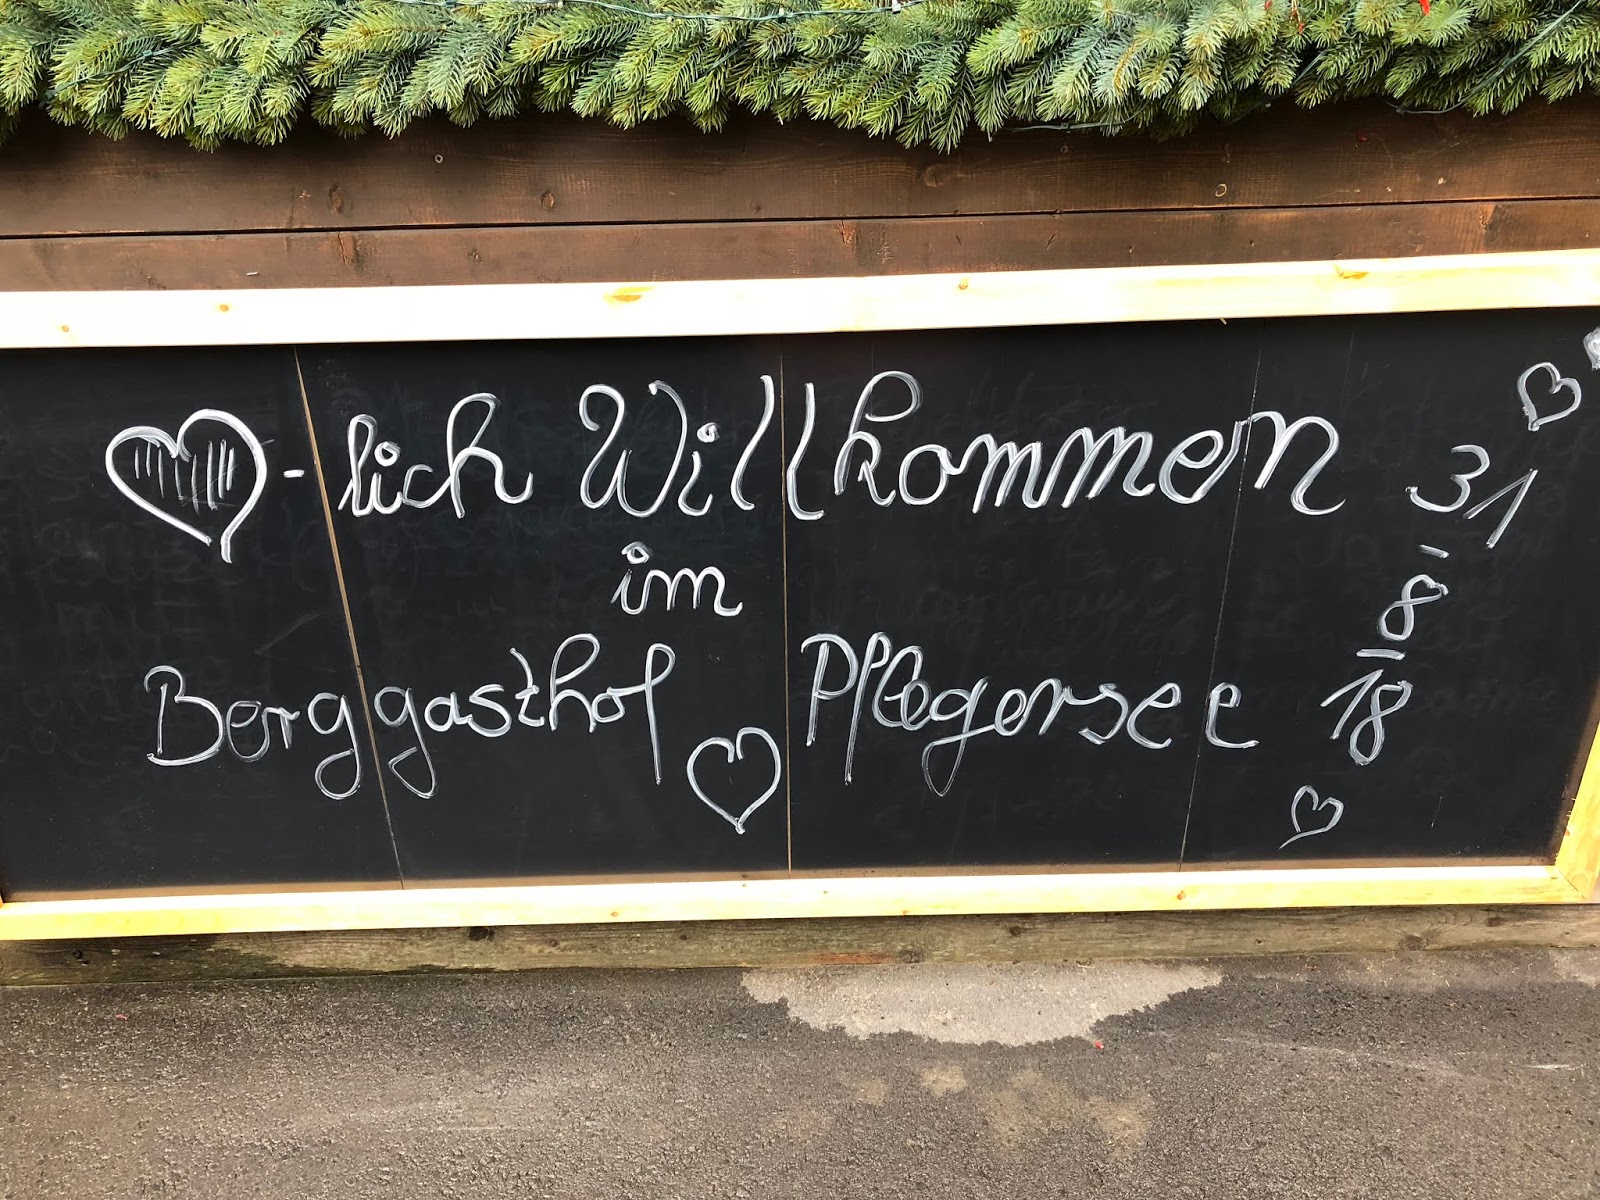 ♡-lich Willkommen
im
Berggasthof Pflegersee
31
-8-
18